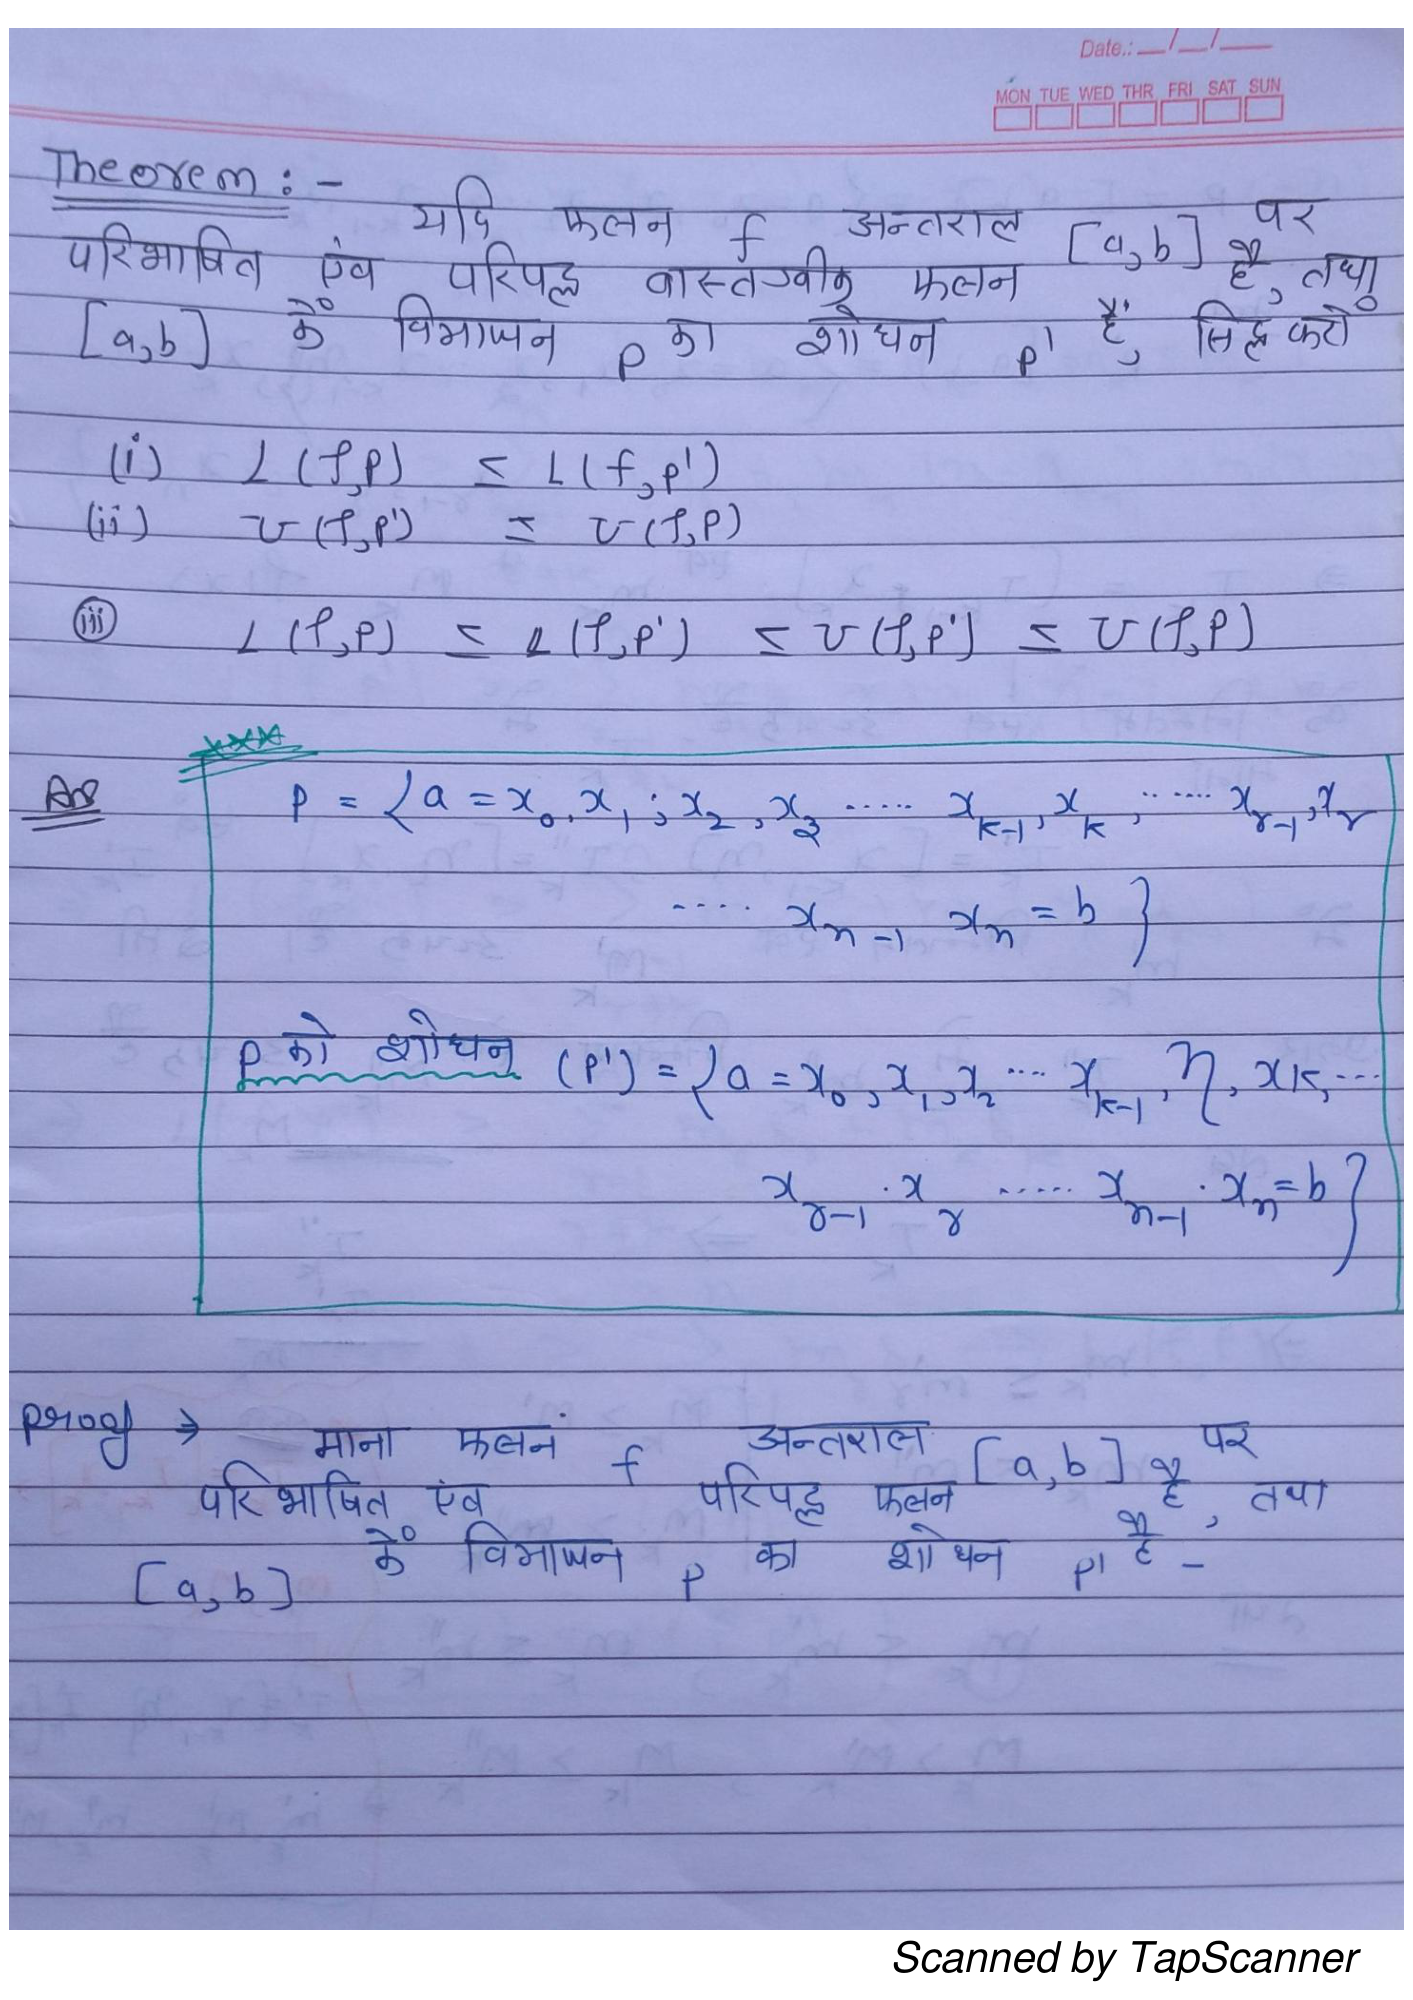 Date.: __/__/__
MON TUE WED THR FRI SAT SUN
Theorem :-
यदि फलन f अन्तराल [a,b] पर
परिभाषित एंव परिपद्ध वास्तव्वीक फलन है, तथा
[a,b] कें विभाजन P का शोधन P' हैं, सिद्ध करो
(i) L(f,P) ≤ L(f,P')
(ii) U(f,P') ≤ U(f,P)
(iii) L(f,P) ≤ L(f,P') ≤ U(f,P') ≤ U(f,P)
***
Ans P = {a = x₀, x₁; x₂, x₃ ..... xₖ₋₁, xₖ, ...... xᵣ₋₁, xᵣ
.... xₙ₋₁ xₙ = b }
P को शोधन (P') = {a = x₀, x₁, x₂ .... xₖ₋₁, η, xk, ...
xᵣ₋₁ . xᵣ ..... xₙ₋₁ . xₙ = b }
Proof → माना फलनं f अन्तराल [a,b] पर
परिभाषित एंव परिपद्ध फलन है, तथा
[a,b] कें विभाजन P का शोधन P' है -
Scanned by TapScanner